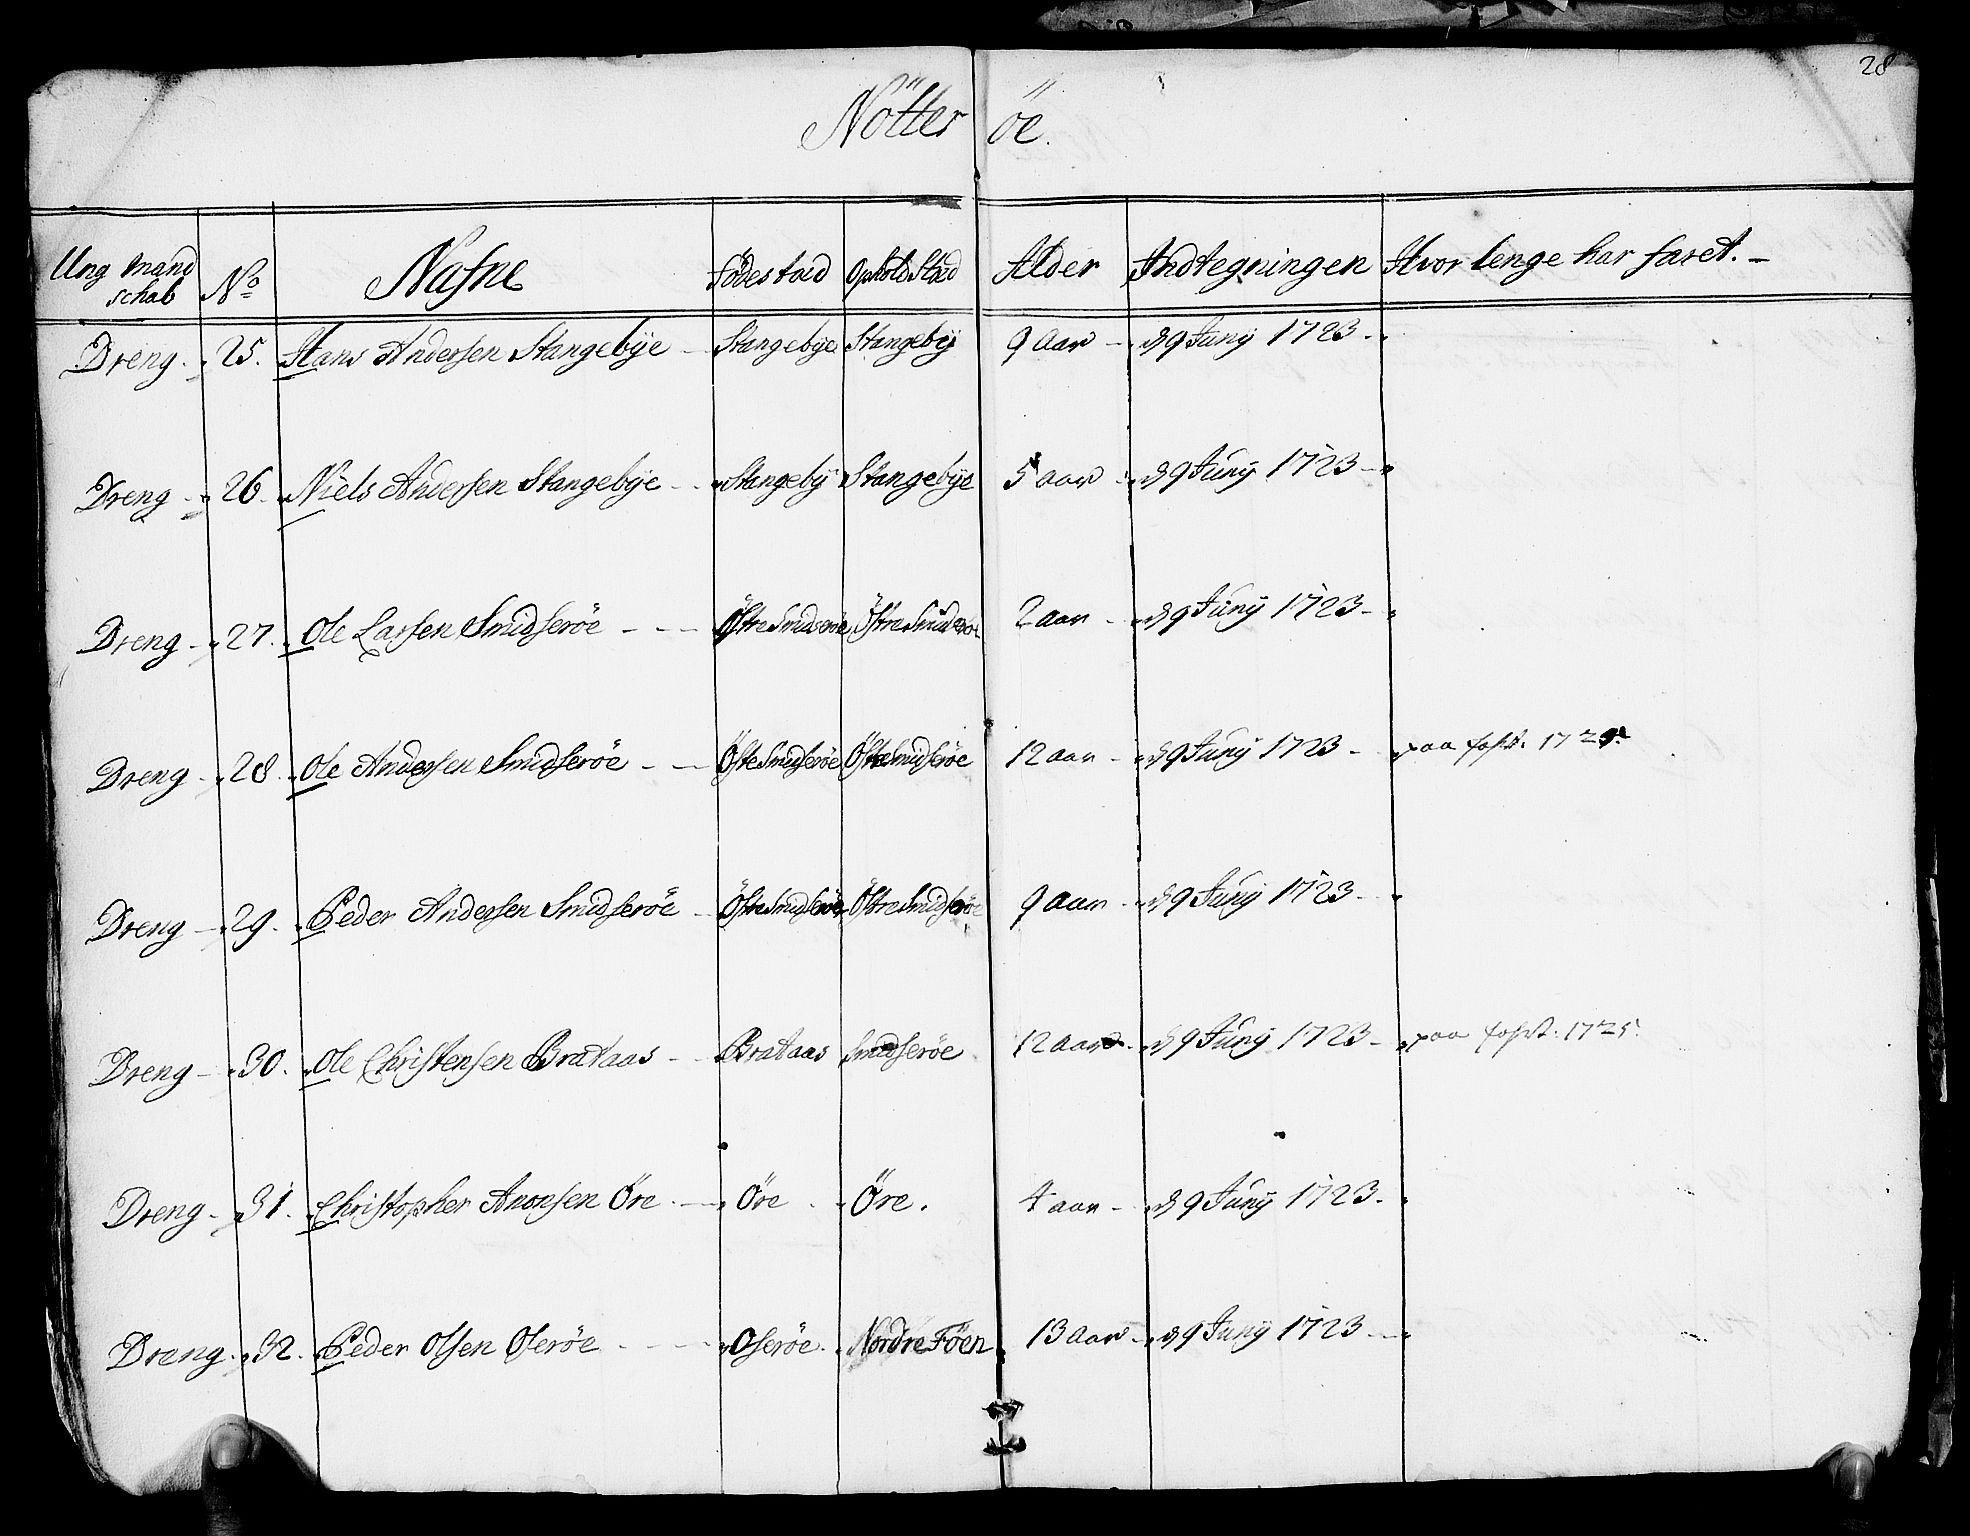 28
Nötter öe.
Ung mand schab No Nafne Födestad Ophold Stad Alder Indtegningen Hvor lenge har faret. -
Dreng - 25. Hans Andersen Stangebÿe - Stangebÿe Stangebÿ 9 aar - d 9 Junÿ 1723 -
Dreng - 26. Niels Andersen Stangebÿe - Stangebÿ Stangebÿe 5 aar d 9 Junÿ 1723 -
Dreng - 27. Ole Larsen Smidseröe - - - Östre Smidseröe Östre Smidseröe 2 aar - d 9 Junÿ 1723 -
Dreng - 28. Ole Andersen Smidseröe - - Östre Smidseröe Östre Smidseröe 12 aar - d 9 Junÿ 1723 - paa 1725
Dreng - 29. Peder Andersen Smidseröe - Östre Smidseröe Östre Smidseröe 9 aar - d 9 Junÿ 1723 -
Dreng - 30. Ole Christensen Brataas - Brataas Smidseröe 12 aar - d 9 Junÿ 1723 - paa 1725
Dreng - 31. Christopher Anonsen Öre - Öre Öre. 4 aar - d 9 Junÿ 1723 -
Dreng - 32. Peder Olsen Oseröe - - - Oseröe. Nordre Föen 13 aar - d 9 Junÿ 1723 -